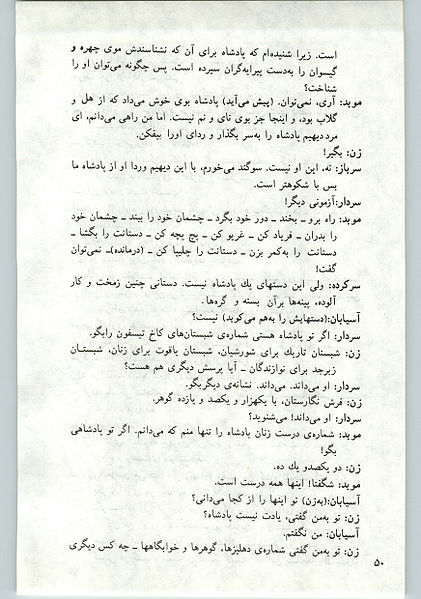 است. زیرا شنیده‌ام که پادشاه برای آن که نشناسندش موی چهره و
گیسوان را به‌دست پیرایه‌گران سپرده است. پس چگونه می‌توان او را
شناخت؟
موبد: آری، نمی‌توان. (پیش می‌آید) پادشاه بوی خوش می‌داد که از هل و
گلاب بود، و اینجا جز بوی نای و نم نیست. اما من راهی می‌دانم، ای
مرد دیهیم پادشاه را به‌سر بگذار و ردای او را بیفکن.
زن: بگیر!
سرباز: نه، این او نیست. سوگند می‌خورم، با این دیهیم و ردا او از پادشاه ما
بس با شکوهتر است.
سردار: آزمونی دیگر!
موبد: راه برو ـ بخند ـ دور خود بگرد ـ چشمان خود را ببند ـ چشمان خود
را بدران ـ فریاد کن ـ غریو کن ـ پچ پچه کن ـ دستانت را بگشا ـ
دستانت را به‌کمر بزن ـ دستانت را چلیپا کن ـ (درمانده)ـ نمی‌توان
گفت!
سرکرده: ولی این دستهای یك پادشاه نیست. دستانی چنین زمخت و کار
آلوده، پینه‌ها برآن بسته و گره‌ها.
آسیابان: (دستهایش را به‌هم می‌کوبد) نیست؟
سردار: اگر تو پادشاه هستی شماره‌ی شبستان‌های کاخ تیسفون را بگو.
زن: شبستان تاریك برای شورشیان، شبستان یاقوت برای زنان، شبستان
زبرجد برای نوازندگان ـ آیا پرسش دیگری هم هست؟
سردار: او می‌داند. می‌داند. نشانه‌ی دیگر بگو.
زن: فرش نگارستان، با یکهزار و یکصد و یازده گوهر.
سردار: او می‌داند! می‌شنوید؟
موبد: شماره‌ی درست زنان پادشاه را تنها منم که می‌دانم. اگر تو پادشاهی
بگو!
زن: دو یکصدو یك ده.
موبد: شگفتا! اینها همه درست است.
آسیابان: (به‌زن) تو اینها را از کجا می‌دانی؟
زن: تو به‌من گفتی، یادت نیست پادشاه؟
آسیابان: من نگفتم.
زن: تو به‌من گفتی شماره‌ی دهلیزها، گوهرها و خوابگاهها ـ چه کس دیگری
۵۰